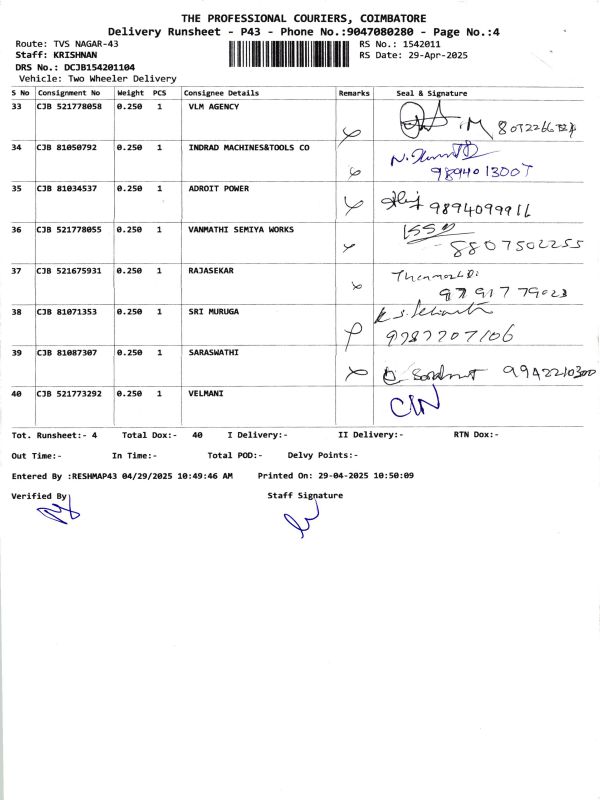 THE PROFESSIONAL COURIERS, COIMBATORE
Delivery Runsheet - P43 - Phone No.:9047080280 - Page No.:4
Route: TVS NAGAR-43 RS No.: 1542011
Staff: KRISHNAN RS Date: 29-Apr-2025
DRS No.: DCJB154201104
Vehicle: Two Wheeler Delivery
S No Consignment No Weight PCS Consignee Details Remarks Seal & Signature
33 CJB 521778058 0.250 1 VLM AGENCY
34 CJB 81050792 0.250 1 INDRAD MACHINES&TOOLS CO
35 CJB 81034537 0.250 1 ADROIT POWER 9894099911
36 CJB 521778055 0.250 1 VANMATHI SEMIYA WORKS 8807502255
37 CJB 521675931 0.250 1 RAJASEKAR 9791779023
38 CJB 81071353 0.250 1 SRI MURUGA 9787707106
39 CJB 81087307 0.250 1 SARASWATHI 9942210300
40 CJB 521773292 0.250 1 VELMANI
Tot. Runsheet:- 4 Total Dox:- 40 I Delivery:- II Delivery:- RTN Dox:-
Out Time:- In Time:- Total POD:- Delvy Points:-
Entered By :RESHMAP43 04/29/2025 10:49:46 AM Printed On: 29-04-2025 10:50:09
Verified By Staff Signature